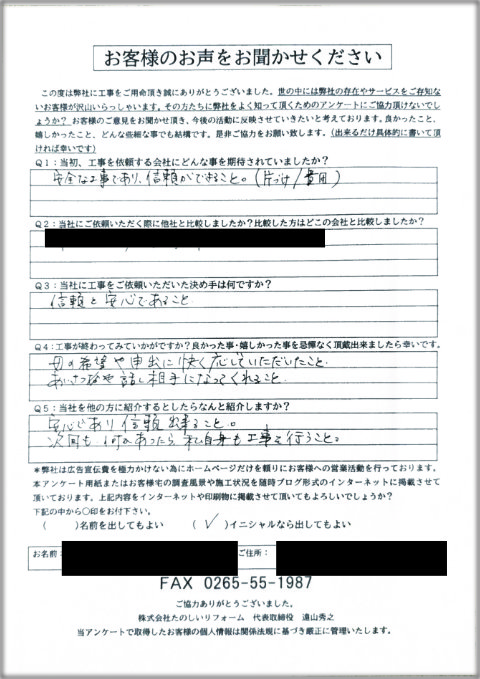 お客様のお声をお聞かせください
この度は弊社に工事をご用命頂き誠にありがとうございました。世の中には弊社の存在やサービスをご存知
ないお客様が沢山いらっしゃいます。その方たちに弊社をよく知って頂くためのアンケートにご協力頂けないでし
ょうか？ お客様のご意見をお聞かせ頂き、今後の活動に反映させていきたいと考えております。良かったこと、
嬉しかったこと、どんな些細な事でも結構です。是非ご協力をお願い致します。（出来るだけ具体的に書いて頂
ければ幸いです）
Q1：当初、工事を依頼する会社にどんな事を期待されていましたか？
安全な工事であり、信頼ができること。（片づけ/費用）
Q2：当社にご依頼いただく際に他社と比較しましたか？比較した方はどこの会社と比較しましたか？
Q3：当社に工事をご依頼いただいた決め手は何ですか？
信頼と安心であること
Q4：工事が終わってみていかがですか？良かった事・嬉しかった事を忌憚なく頂戴出来ましたら幸いです。
母の希望や申出に快く応じていただいたこと.
あいさつや話し相手になってくれること.
Q5：当社を他の方に紹介するとしたらなんと紹介しますか？
安心であり信頼出来ること。
次回も何かあったら私自身も工事を行うこと。
＊弊社は広告宣伝費を極力かけない為にホームページだけを頼りにお客様への営業活動を行っております。
本アンケート用紙またはお客様宅の調査風景や施工状況を随時ブログ形式のインターネットに掲載させて
頂いております。上記内容をインターネットや印刷物に掲載させて頂いてもよろしいでしょうか？
下記の中から○印をお付下さい。
（　　）名前を出してもよい　（ ✓ ）イニシャルなら出してもよい
お名前： ご住所：
FAX 0265-55-1987
ご協力ありがとうございました。
株式会社たのしいリフォーム　代表取締役　遠山秀之
当アンケートで取得したお客様の個人情報は関係法規に基づき厳正に管理いたします。